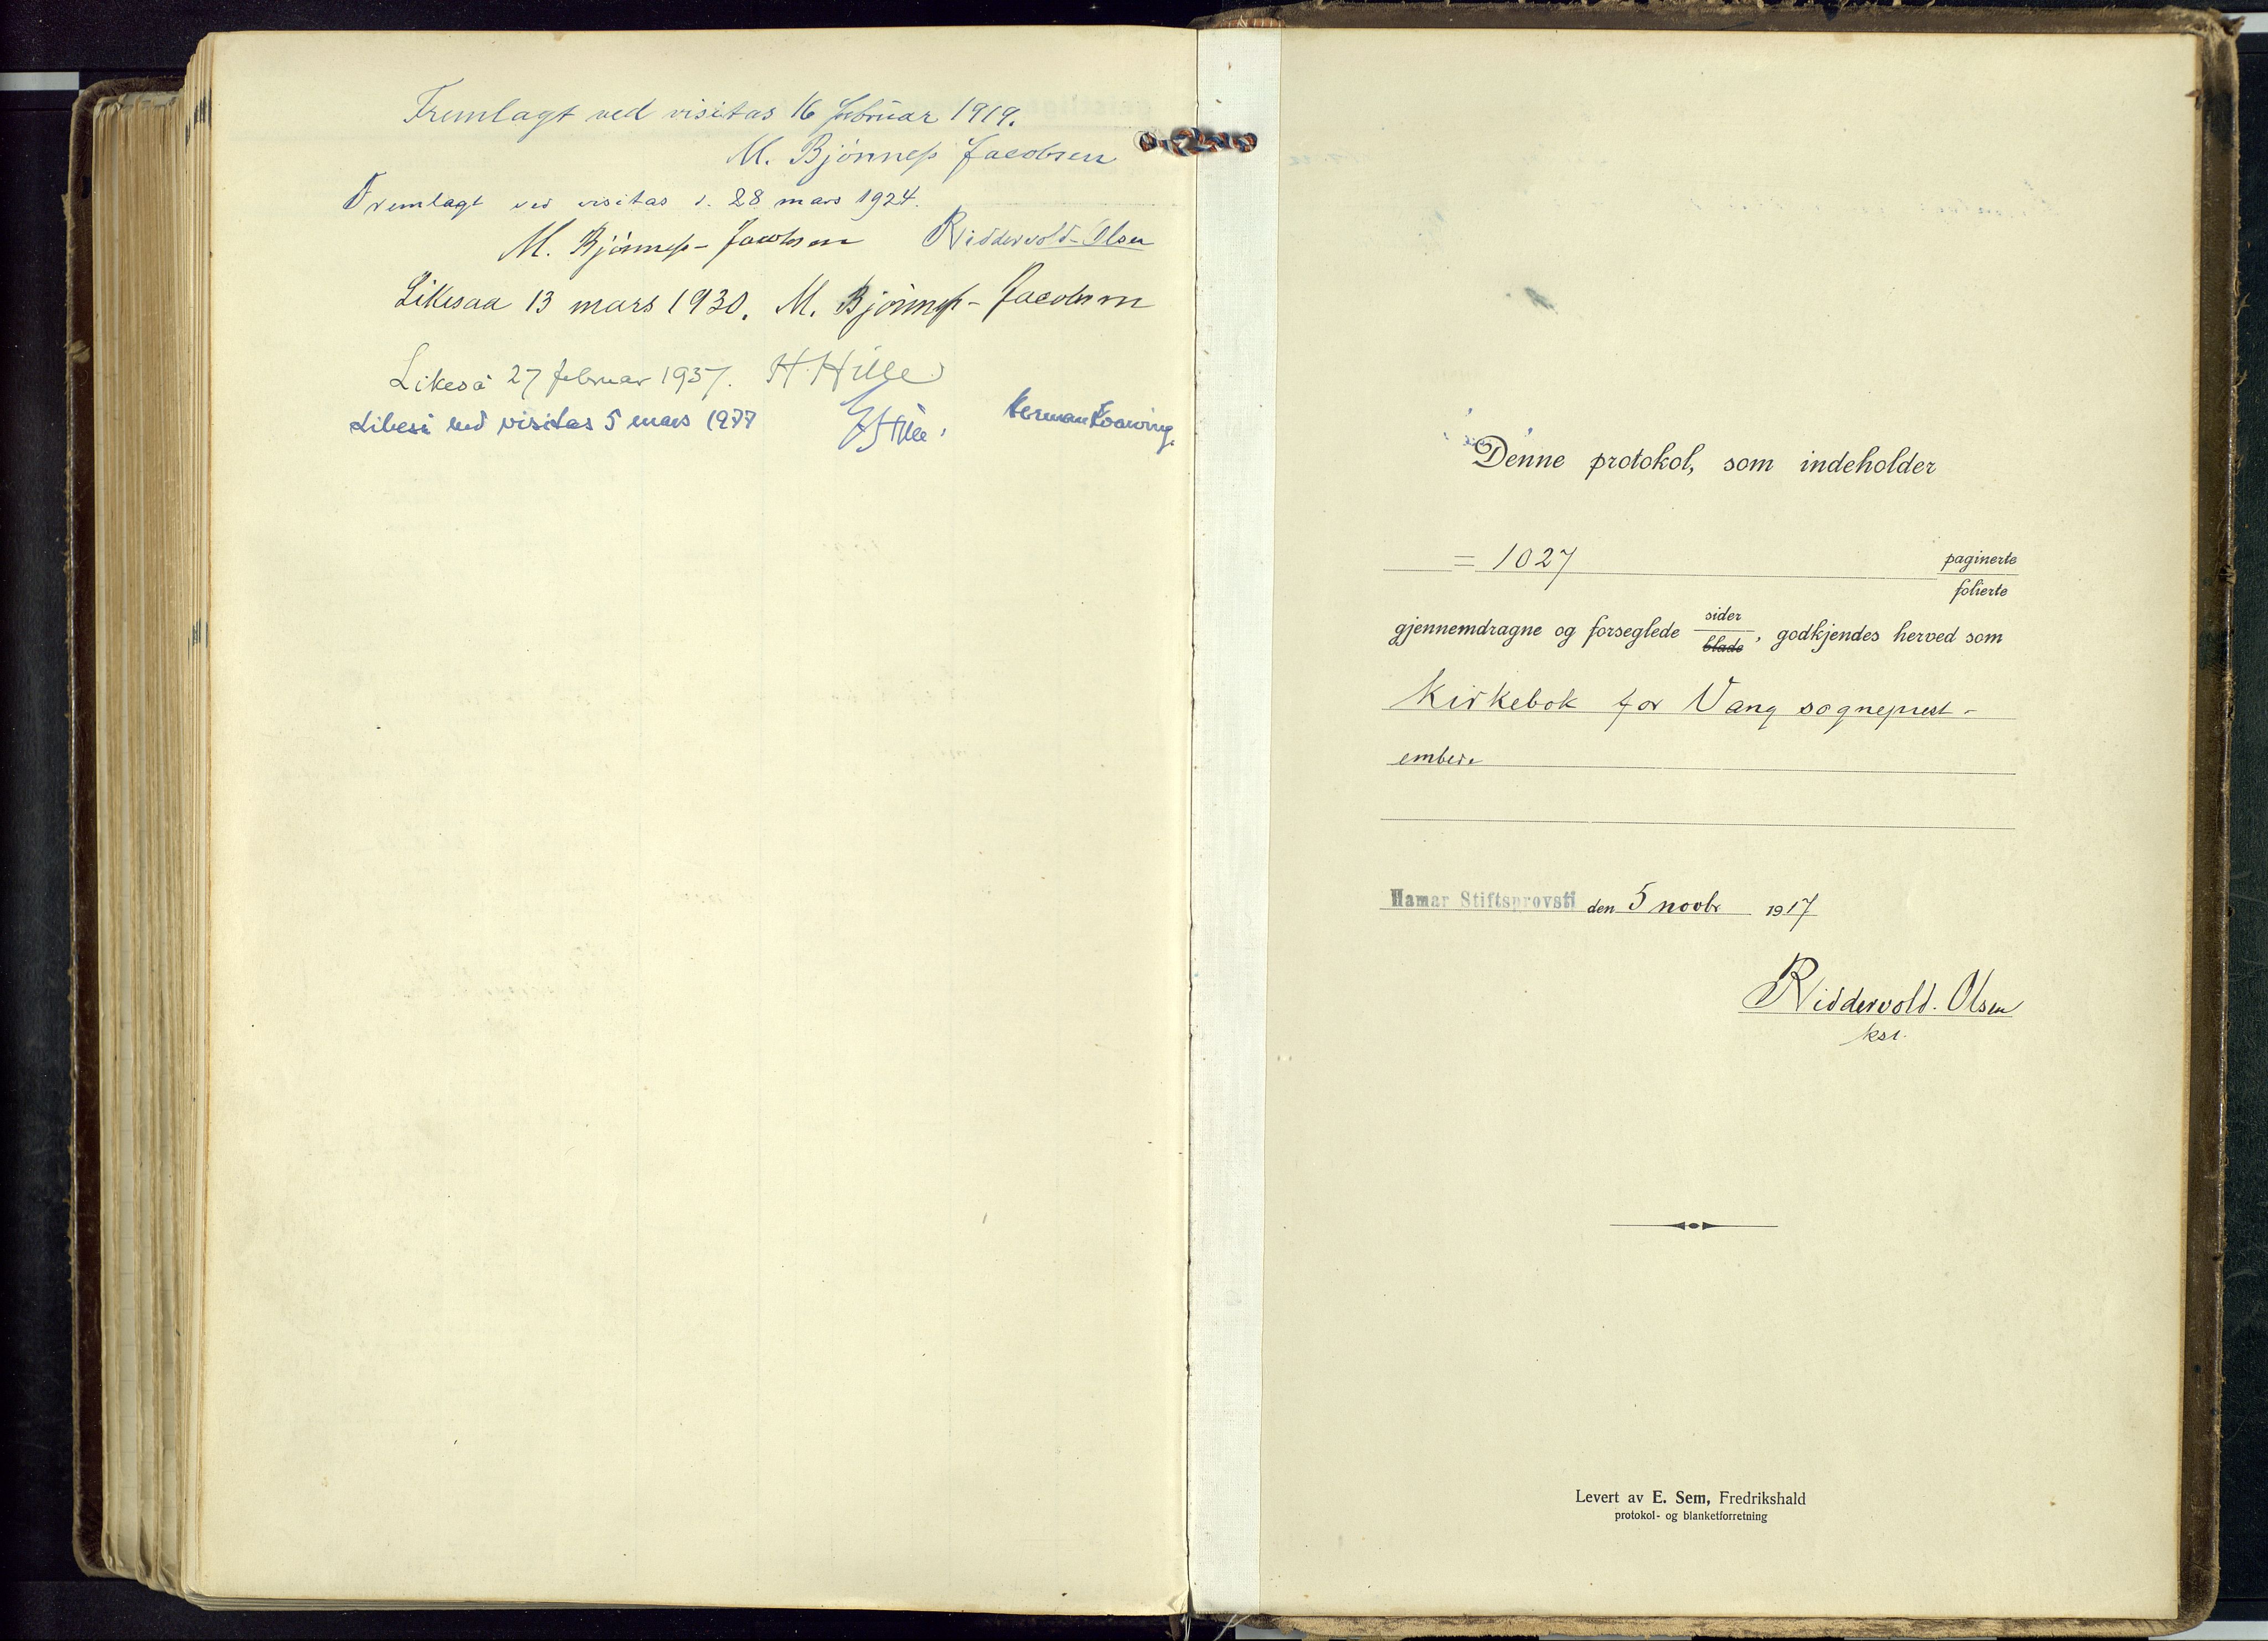 Fremlagt ved visitas 16 februar 1919.
M. Bjønness Jacobsen
Fremlagt ved visitas d. 28 mars 1924.
M. Bjønness-Jacobsen Riddervold-Olsen
Likesaa 13 mars 1930. M. Bjønness-Jacobsen
Likeså 27 februar 1937. H. Hille
Likeså ved visitas 5 mars HHille. Herman
Denne protokol, som indeholder
= 1027 paginerte
folierte
gjennemdragne og forseglede sider
blade, godkjendes herved som
Kirkebok for Vang sogneprest-
embede
Hamar Stiftsprovsti den 5 novbr 1917
Riddervold-Olsen
kst.
Levert av E. Sem, Fredrikshald
protokol- og blanketforretning